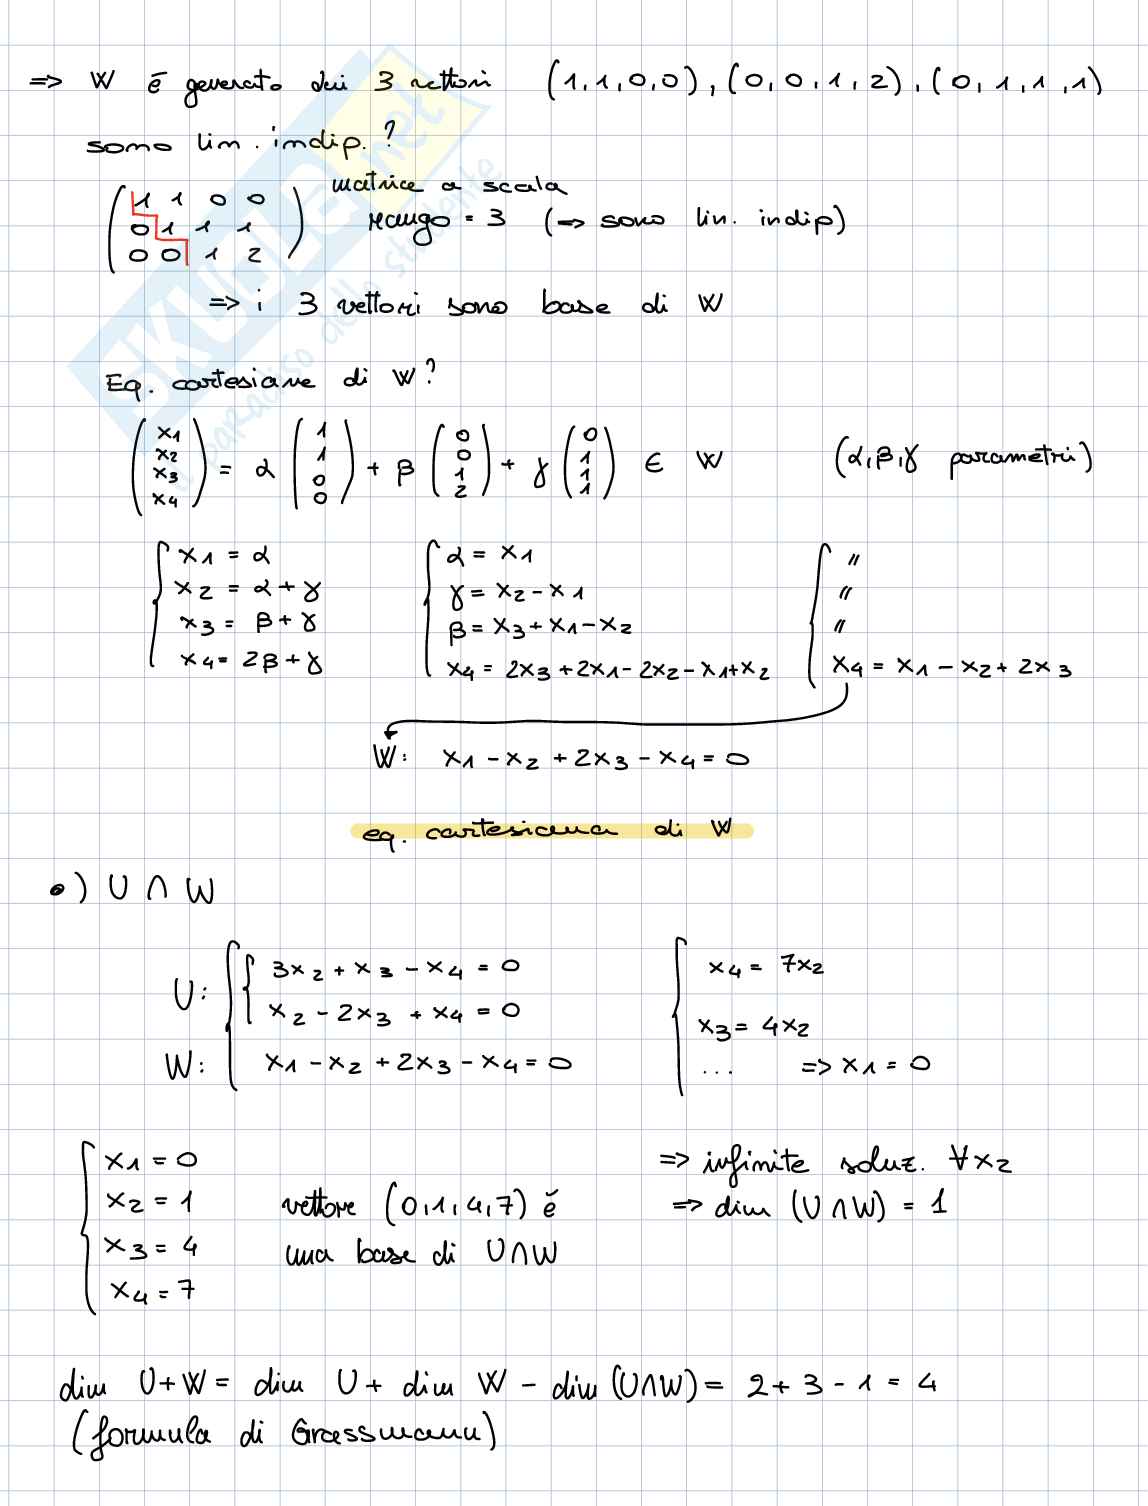 => W é generato dai 3 vettori (1,1,0,0), (0,0,1,2), (0,1,1,1)
sono lin. indip.?
( 1 1 0 0
0 1 1 1
0 0 1 2 )
matrice a scala
rango = 3 (=> sono lin. indip)
=> i 3 vettori sono base di W
Eq. cartesiane di W?
(x1 x2 x3 x4) = α (1 1 0 0) + β (0 0 1 2) + γ (0 1 1 1) ∈ W (α,β,γ parametri)
{ x1 = α
x2 = α + γ
x3 = β + γ
x4 = 2β + γ
{ α = x1
γ = x2 - x1
β = x3 + x1 - x2
x4 = 2x3 + 2x1 - 2x2 - x1 + x2
{ "
"
"
x4 = x1 - x2 + 2x3
W: x1 - x2 + 2x3 - x4 = 0
eq. cartesiana di W
•) U ∩ W
U: { 3x2 + x3 - x4 = 0
x2 - 2x3 + x4 = 0
W: x1 - x2 + 2x3 - x4 = 0
{ x4 = 7x2
x3 = 4x2
... => x1 = 0
{ x1 = 0
x2 = 1
x3 = 4
x4 = 7
vettore (0,1,4,7) é
una base di U∩W
=> infinite soluz. ∀x2
=> dim (U∩W) = 1
dim U+W = dim U + dim W - dim (U∩W) = 2 + 3 - 1 = 4
(formula di Grassmann)
SKUOLA.net
il paradiso dello studente